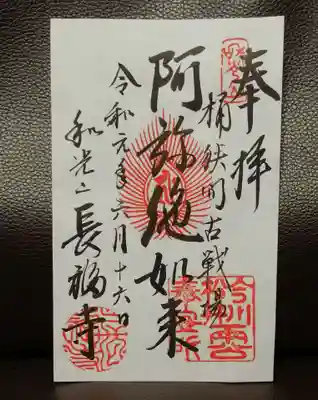 奉拝
桶狭間古戦場
阿弥陀如来
令和元年六月十六日
和光山 長福寺